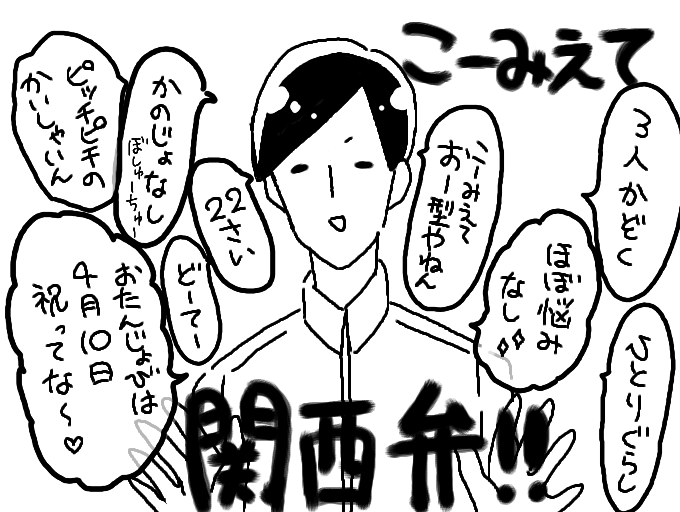 こーみえて
3人かぞく
ひとりぐらし
ほぼ悩み
なし
こーみえて
おー型やねん
かのじょなし
ぼしゅーちゅー
22さい
どーてー
ピッチピチの
かいしゃいん
おたんじょびは
4月10日
祝ってな〜♡
関西弁!!